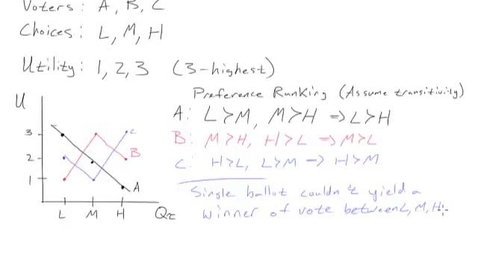 Voters: A, B, C
Choices: L, M, H
Utility: 1, 2, 3 (3-highest)
Preference Ranking (Assume transitivity)
A: L>M, M>H ⇒ L>H
B: M>H, H>L ⇒ M>L
C: H>L, L>M ⇒ H>M
Single ballot couldn't yield a
winner of vote between L, M, H
U
3
2
1
C
B
A
L M H Qz